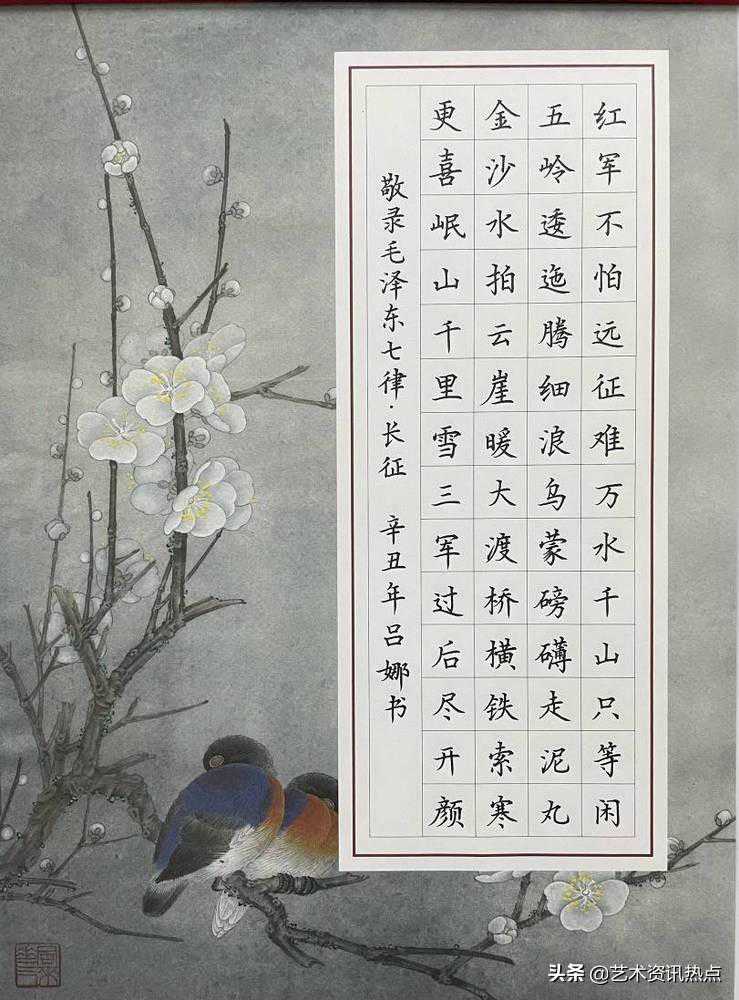 红军不怕远征难万水千山只等闲
五岭逶迤腾细浪乌蒙磅礴走泥丸
金沙水拍云崖暖大渡桥横铁索寒
更喜岷山千里雪三军过后尽开颜
敬录毛泽东七律·长征 辛丑年吕娜书
头条 @艺术资讯热点